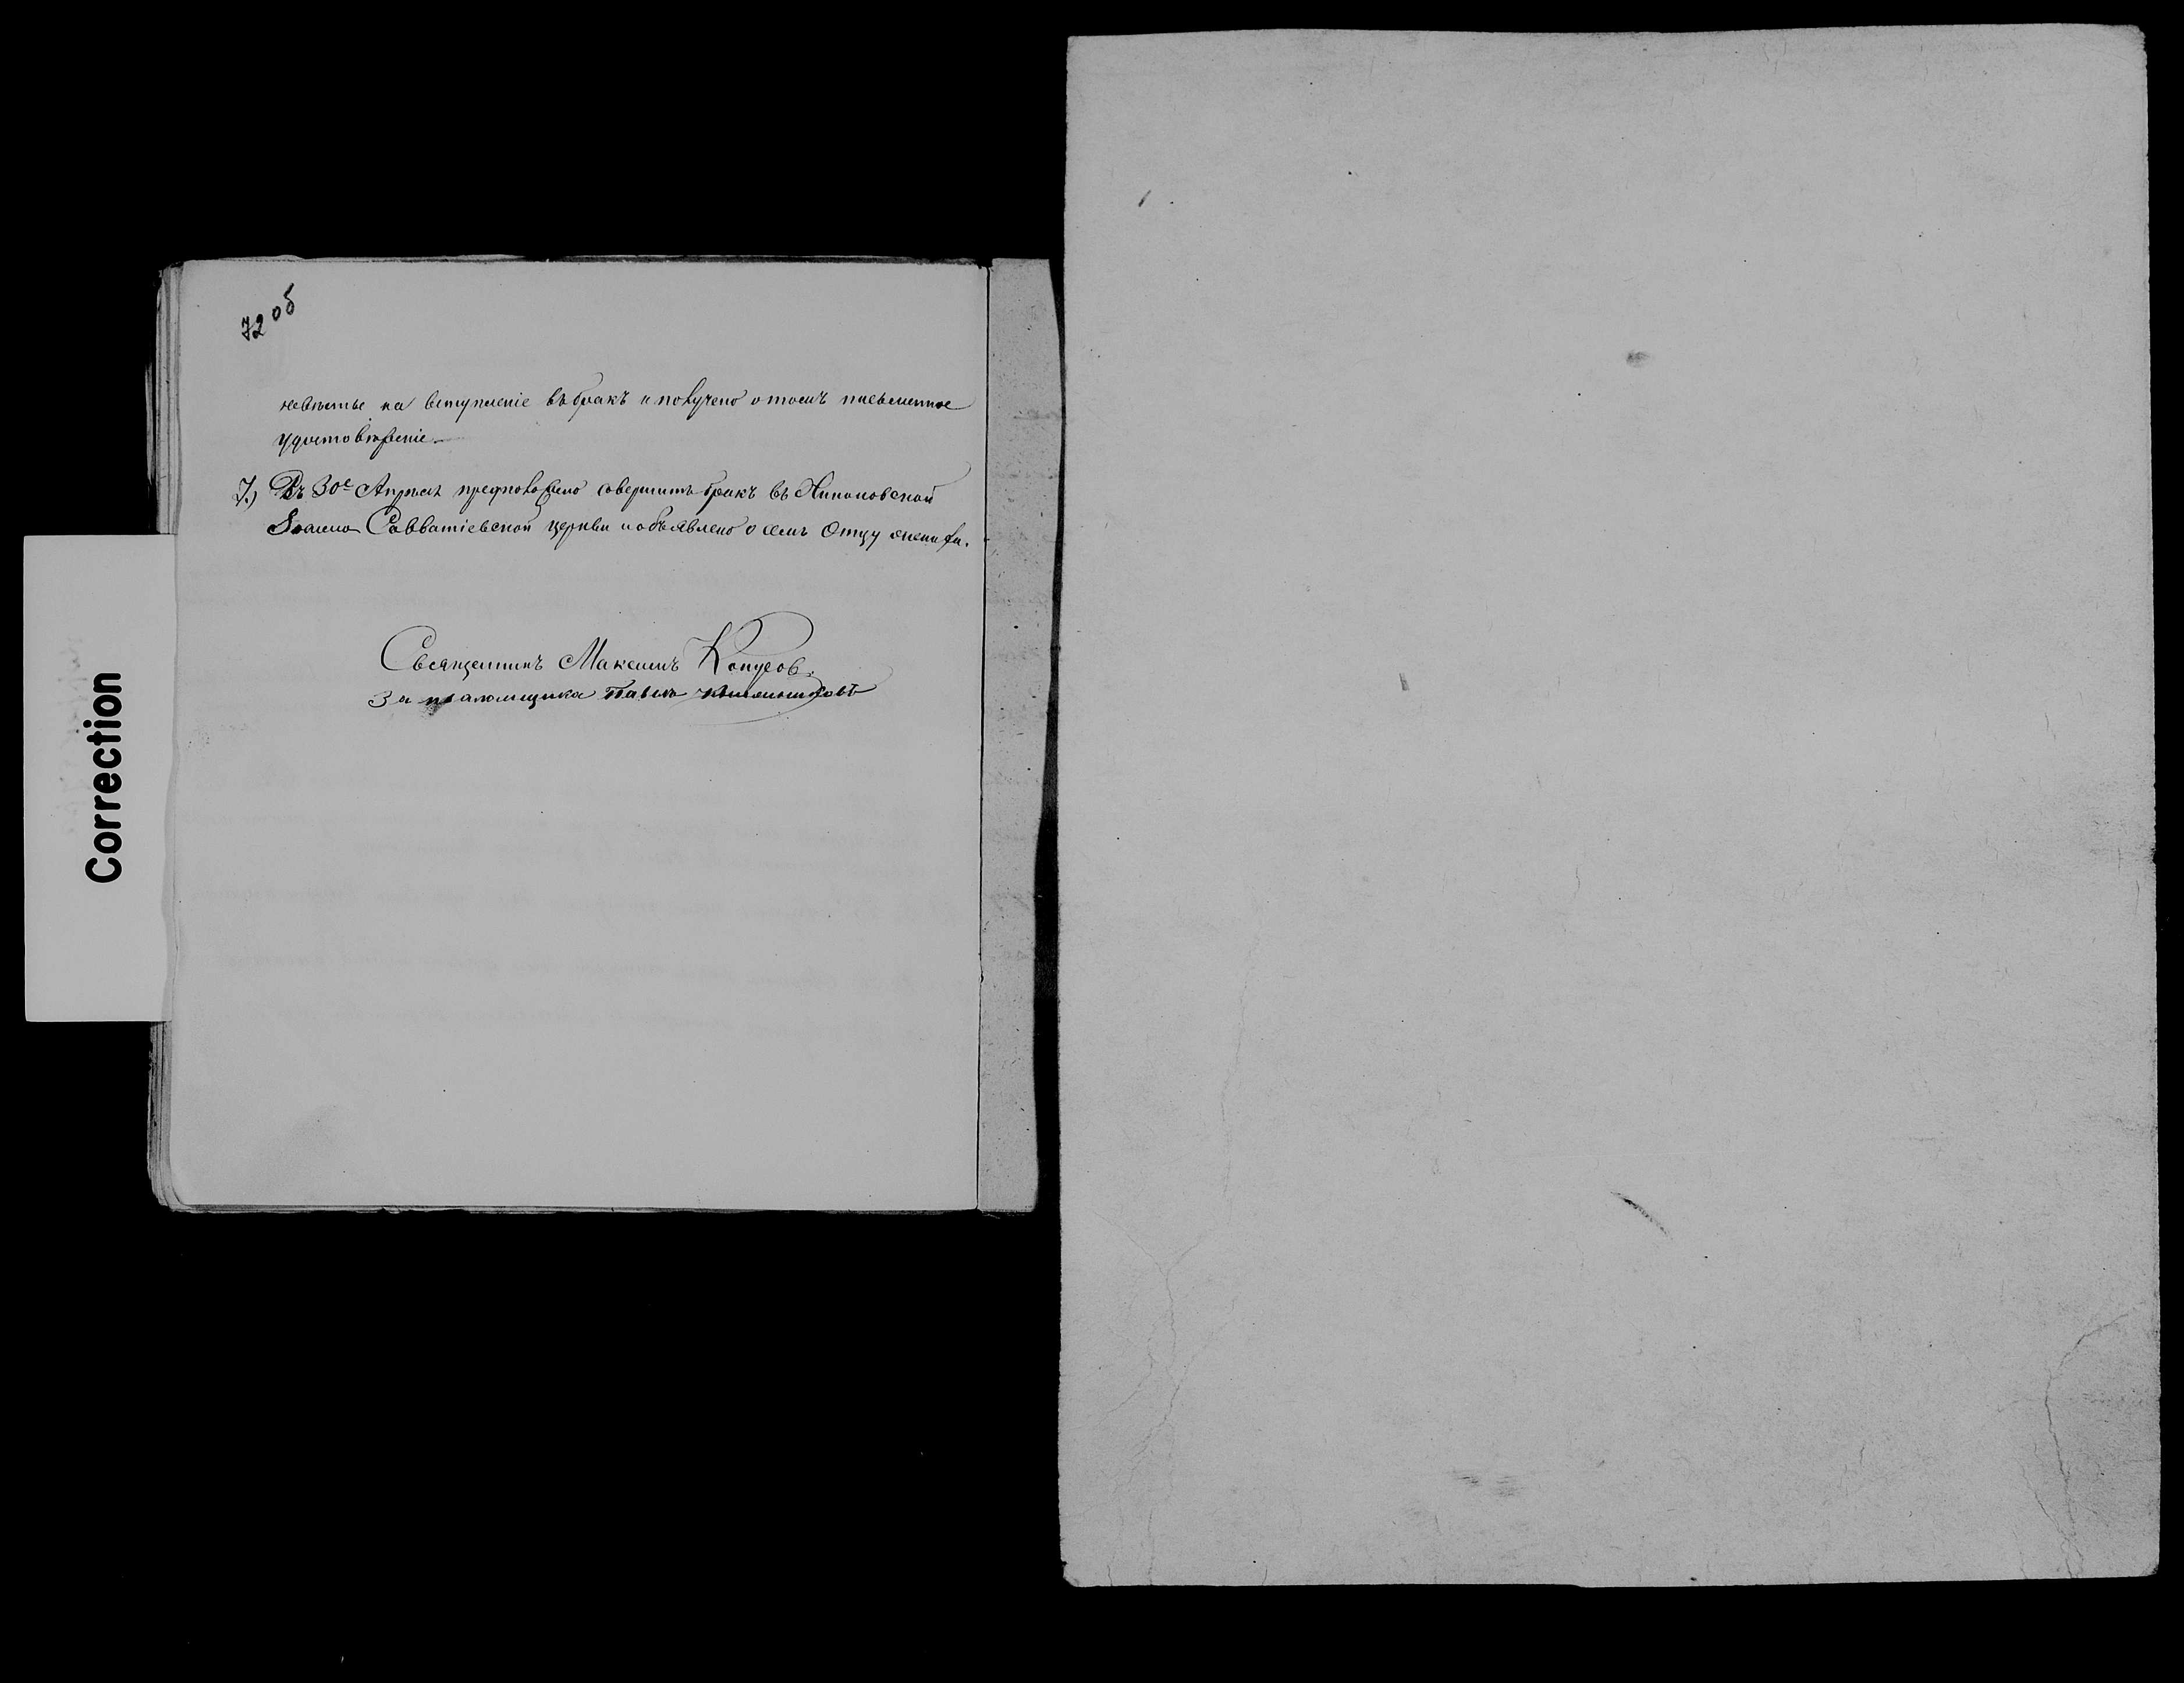 72 об
невѣстѣ на вступленіе въ бракъ и получено о томъ письменное
удостовѣреніе.
7.) Въ 30е Апрѣля предположено совершить бракъ въ
Савватіевской церкви и объявлено о семъ Отцу жениха.
Священникъ Максимъ
За псаломщика Павелъ
Correction